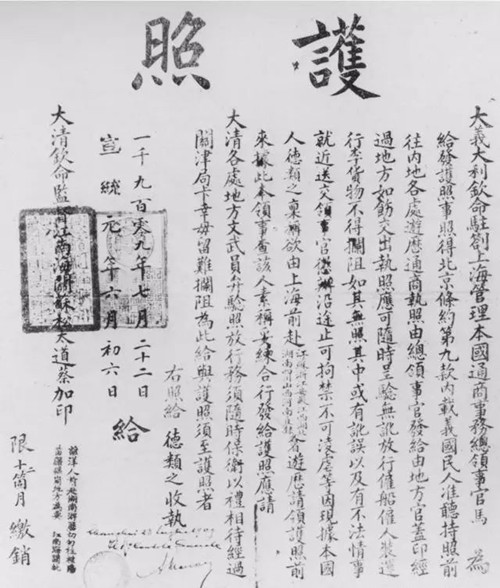 護照
大義大利欽命駐劄上海管理本國通商事務總領事官馬 為
給發護照事照得北京條約第九款內載義國民人准聽持照前
往內地各處遊歷通商執照由總領事官發給由地方官蓋印經
過地方如飭交出執照應可隨時呈驗無訛放行僱船僱人裝運
行李貨物不得攔阻如其無照其中或有訛誤以及有不法情事
就近送交領事官懲辦沿途止可拘禁不可凌虐等因現據本國
人德類之稟稱欲由上海前赴江蘇浙江安徽江西湖北湖南四川山西河南直隸各省遊歷請領護照前
來據此本領事查該人素稱安練合行發給護照應請
大清各處地方文武員弁驗照放行務須隨時保衛以禮相待經過
關津局卡幸毋留難攔阻為此給與護照須至護照者
右照給 德類之收執
一千九百零九年七月二十二日
宣統元年六月初六日 給
大清欽命監督江南海關蘇松太道蔡加印
限十二個月繳銷
Shanghai 23 Luglio 1909
Il R. Console Generale